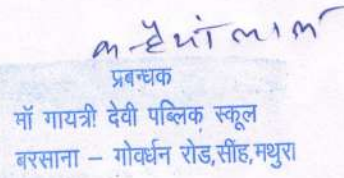 कन्हैयां लाल
प्रबन्धक
माँ गायत्री देवी पब्लिक स्कूल
बरसाना – गोवर्धन रोड,सींह,मथुरा